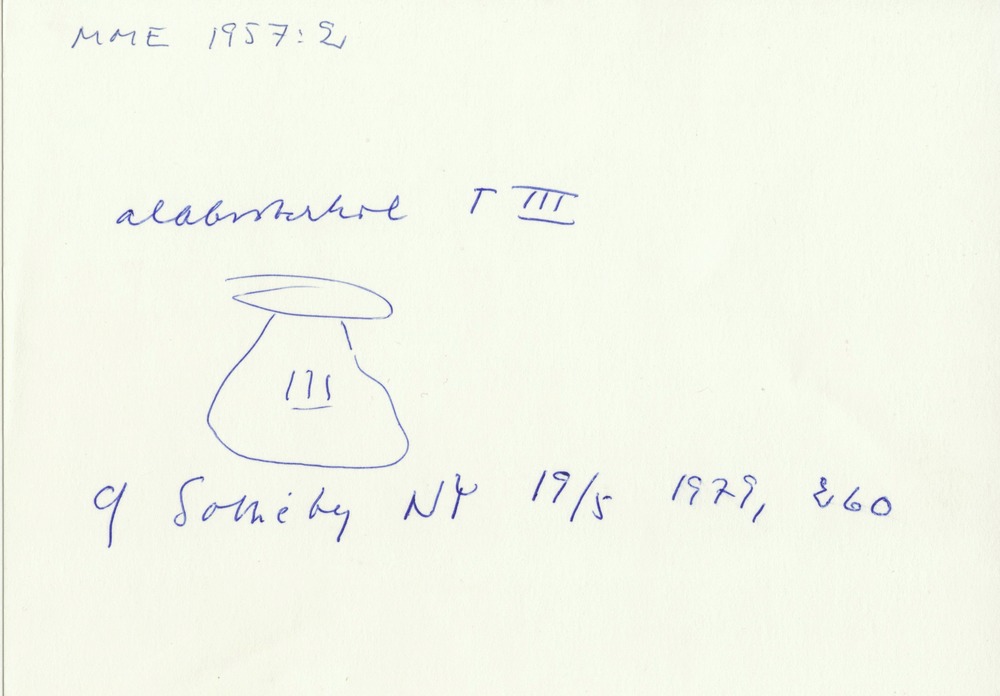 MME 1957:2
alabasterkohl T III
III
cf Sotheby NY 19/5 1979, 260